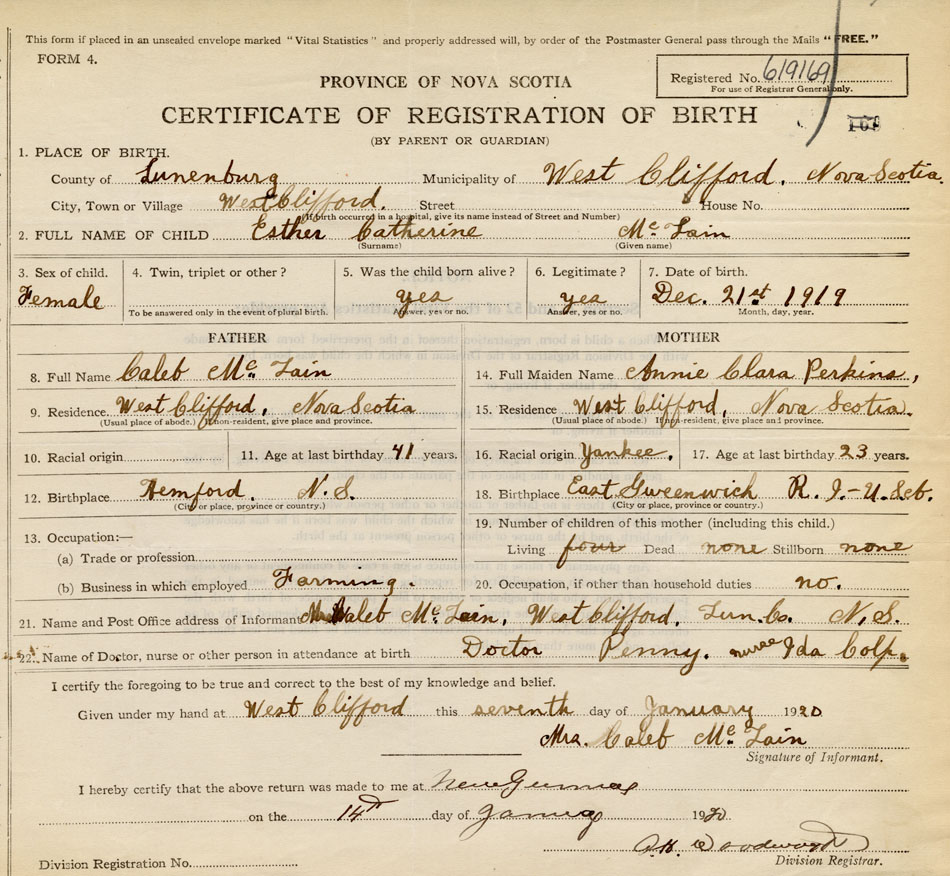 This form if placed in an unsealed envelope marked "Vital Statistics" and properly addressed will, by order of the Postmaster General pass through the Mails "FREE."
FORM 4.
Registered No. 619169
For use of Registrar General only.
PROVINCE OF NOVA SCOTIA
CERTIFICATE OF REGISTRATION OF BIRTH
(BY PARENT OR GUARDIAN)
1. PLACE OF BIRTH.
County of Lunenburg Municipality of West Clifford, Nova Scotia.
City, Town or Village West Clifford. Street House No.
(If birth occurred in a hospital, give its name instead of Street and Number)
2. FULL NAME OF CHILD Esther Catherine Mc Lain
(Surname) (Given name)
3. Sex of child. 4. Twin, triplet or other? 5. Was the child born alive? 6. Legitimate? 7. Date of birth.
Female yes yes Dec. 21st 1919
To be answered only in the event of plural birth. Answer, yes or no. Answer, yes or no. Month, day, year.
FATHER MOTHER
8. Full Name Caleb Mc Lain 14. Full Maiden Name Annie Clara Perkins,
9. Residence West Clifford, Nova Scotia 15. Residence West Clifford, Nova Scotia.
(Usual place of abode.) If non-resident, give place and province. (Usual place of abode.) If non-resident, give place and province.
10. Racial origin 11. Age at last birthday 41 years. 16. Racial origin Yankee. 17. Age at last birthday 23 years.
12. Birthplace Hemford. N.S. 18. Birthplace East Gweenwich R.I-U.
(City or place, province or country.) (City or place, province or country.)
19. Number of children of this mother (including this child.)
13. Occupation:—
Living four Dead none Stillborn none
(a) Trade or profession
(b) Business in which employed Farming. 20. Occupation, if other than household duties no.
21. Name and Post Office address of Informant Mrs Caleb Mc Lain, West Clifford, Lun. Co. N.S.
22. Name of Doctor, nurse or other person in attendance at birth Doctor Penny. nurse Ida Colp.
I certify the foregoing to be true and correct to the best of my knowledge and belief.
Given under my hand at West Clifford this seventh day of January 1920
Mrs. Caleb Mc Lain
Signature of Informant.
I hereby certify that the above return was made to me at
on the 14th day of 1920
Division Registration No. Division Registrar.